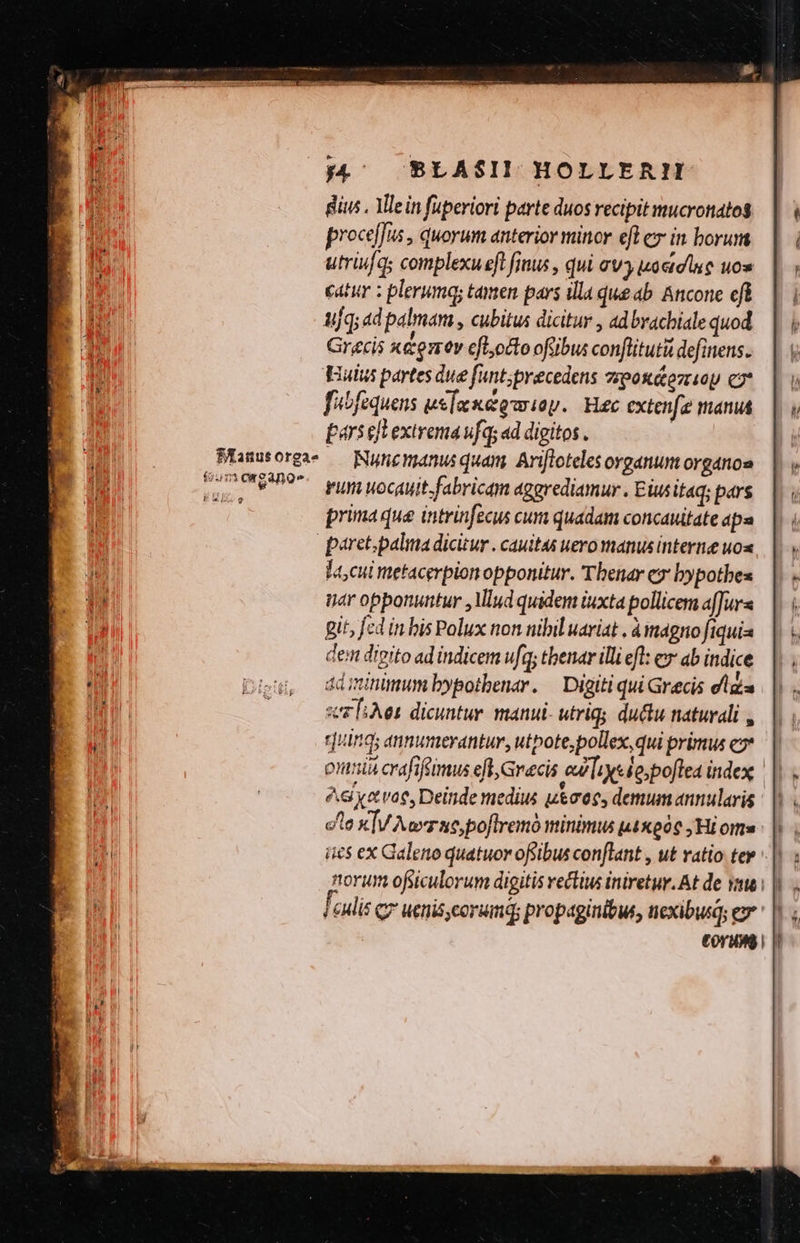 34 BLASII HOLLERII
dius. Ille in ſuperiori parte duos recipit mucronatos
proceſſus, quorum anterior minor eſt & in horum
utriuſq; complexu eſt ſinus, qui σιγμοειδὴς uo=
catur: plerumq; tamen pars illa quæ ab Ancone eſt
uſq; ad palmam, cubitus dicitur, ad brachiale quod
Græcis καρπὸν eſt, octo oſſibus conſtitutū definens.
Huius partes duæ ſunt, præcedens προκάρπιου &
ſubſequens μετακαρπιου. Hæc extenſæ manus
pars eſt extrema uſq; ad digitos.
Manus orga=
Nunc manus quam Ariſtoteles organum organo=
num organo=
rum uocauit, fabricam aggrediamur. Eius itaq; pars
rum.
prima quæ intrinſecus cum quadam concauitate apa=
paret, palma dicitur. cauitas uero manus internæ uo=
la, cui metacerpion opponitur. Thenar & hypothe=
nar opponuntur, Illud quidem iuxta pollicem aſſur=
git, ſed in his Polux non nihil uariat. à magno ſiqui=
dem digito ad indicem uſq; thenar illi eſt: & ab indice
Digiti,
ad minimum hypothenar. Digiti qui Græcis
dicuntur manui utriq; ductu naturali,
quinq; annumerantur, utpote, pollex, qui primus &
omniū craſiſſimus eſt, Græcis ἀντίχειρ, poſtea index
λείχανος, Deinde medius μέσος, demum annularis
δακτυλιώτης, poſtremò minimus μικρὸς, Hi om=
nes ex Galeno quatuor oſſibus conſtant, ut ratio ter=
norum oſſiculorum digitis rectius iniretur. At de mu=
ſculis & uenis, eorumq; propaginibus, nexibusq; &
eorum